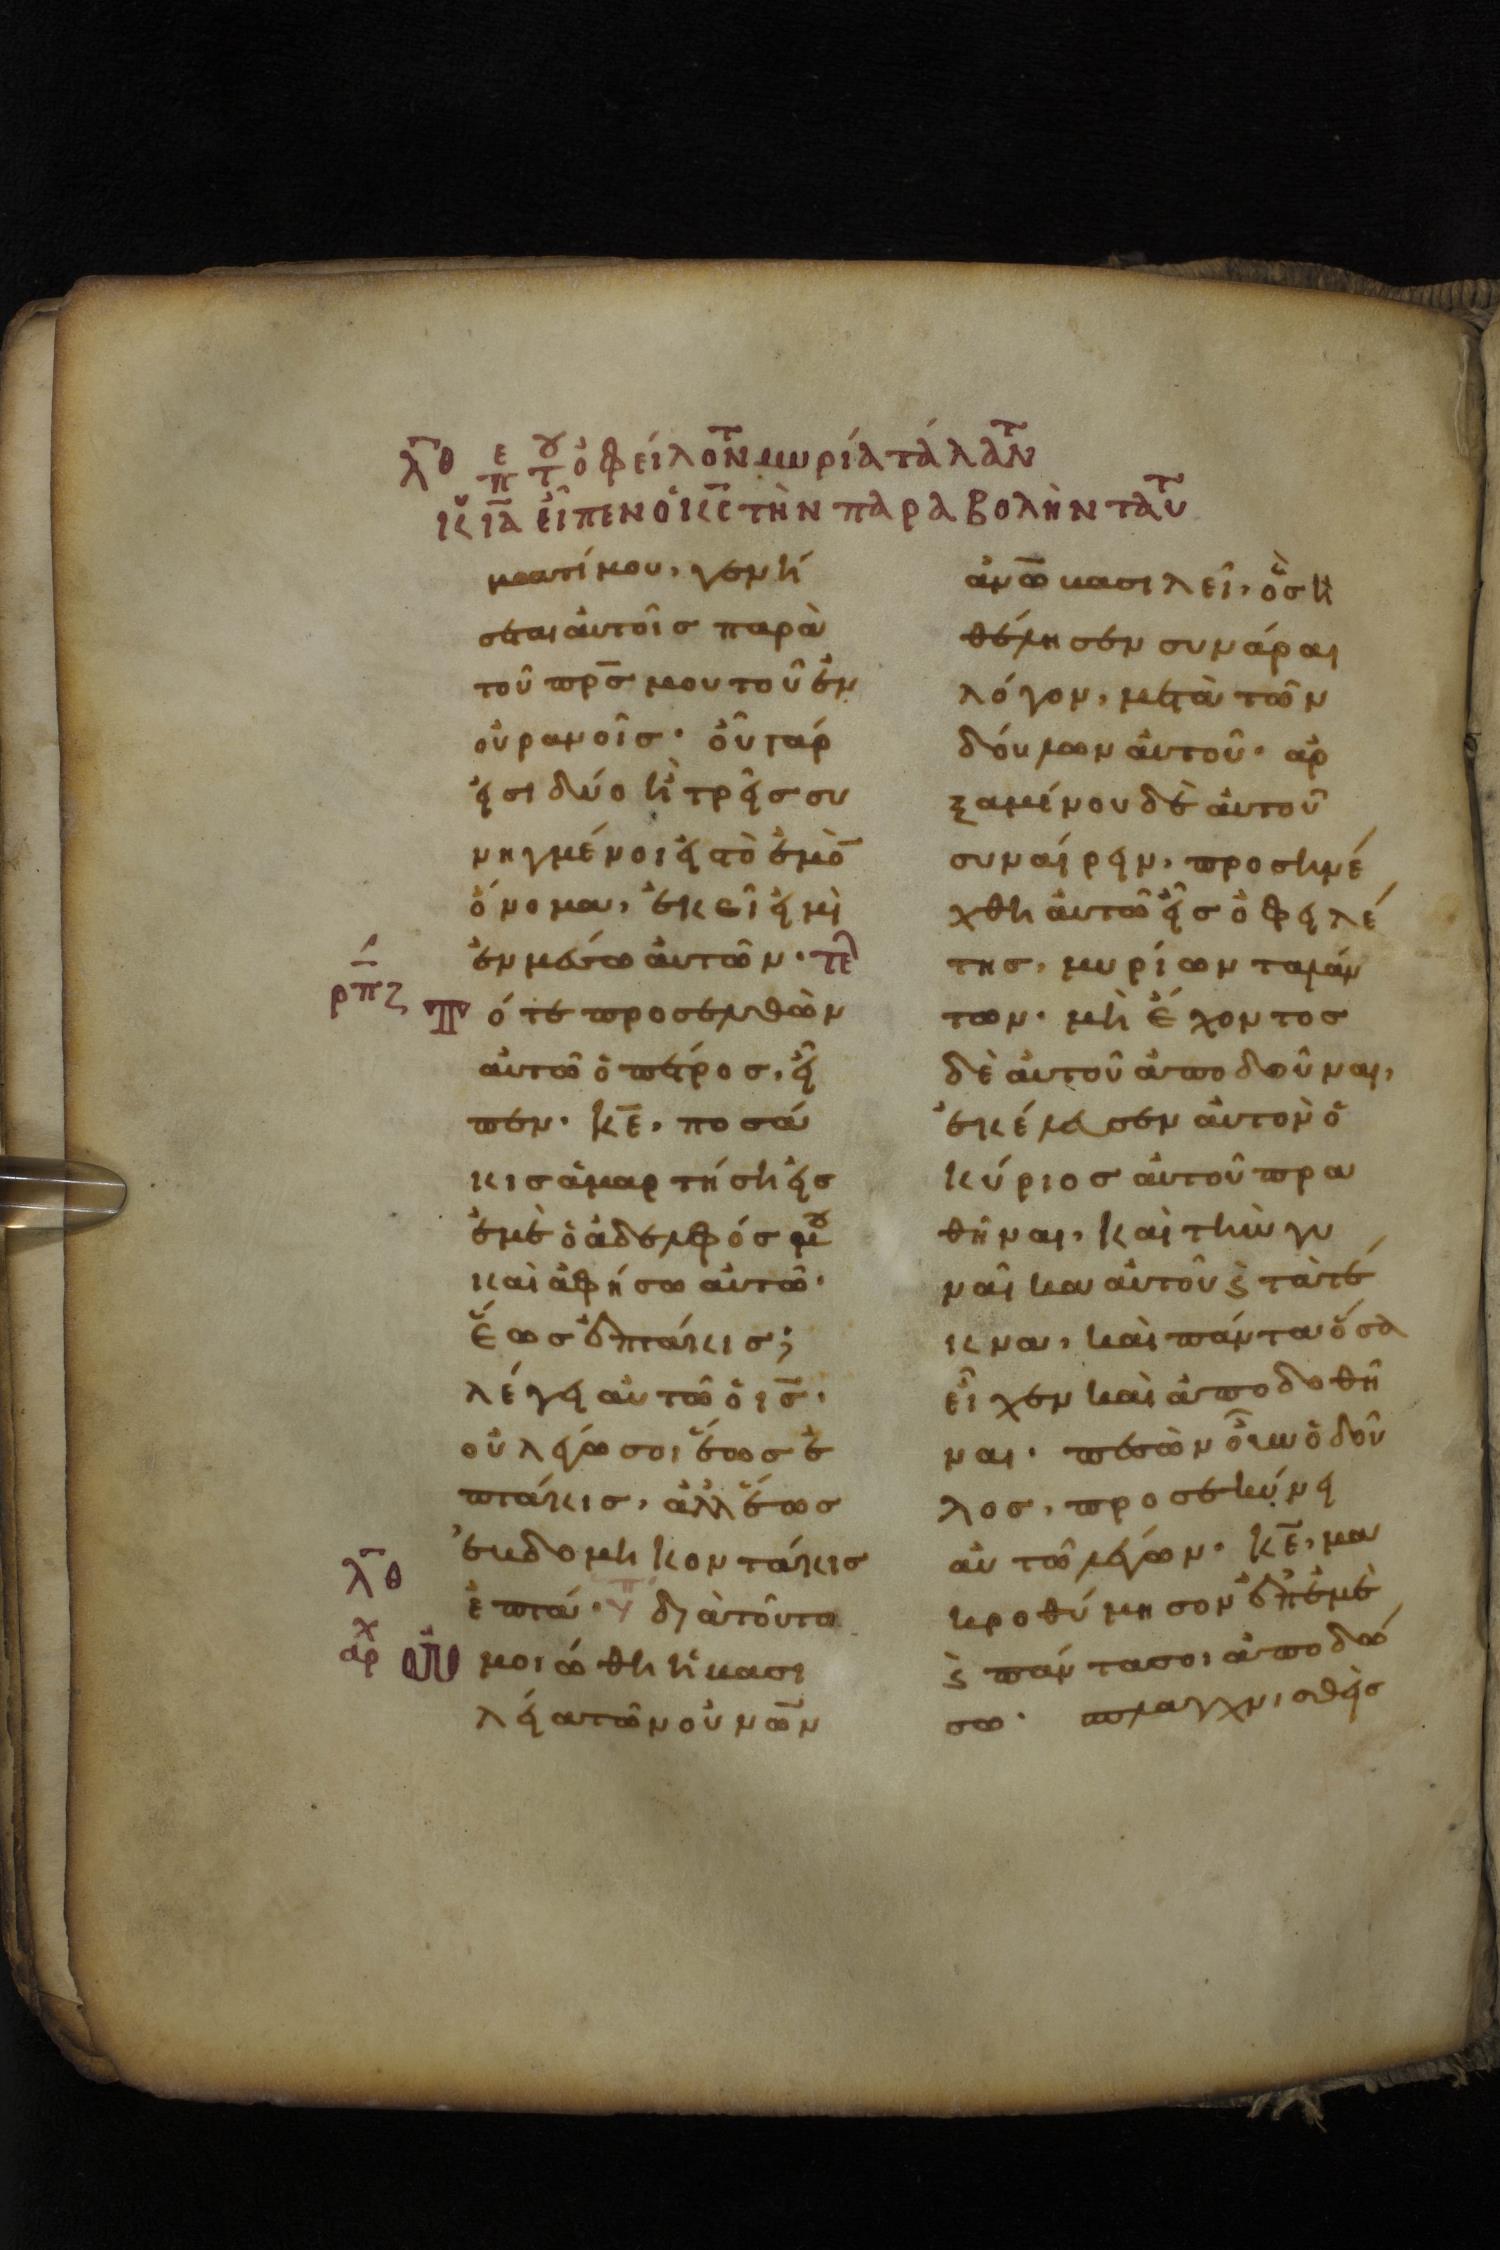 λθ περὶ τοῦ ὀφείλοντ μυρία τάλαντ
κυ ια εἶπεν ὁ κς τὴν παραβολὴν ταύτ
ματίμου, γενή
σεται αὐτοῖσ παρὰ
τοῦ πρσ μου τοῦ ἐν
οὐρανοῖσ· οὗ γάρ
εἰσι δύο ἢ τρεῖσ συ
νηγμένοι εἰσ τὸ ἐμὸ
ὄνομα, ἐκεῖ εἰμὶ
ἐν μέσω αὐτῶν· τελ
ρπζ Τότε προσελθὼν
αὐτῶ ὁ πέτροσ, εἶ
πεν· κε, ποσά
κισ ἁμαρτήση εἰσ
ἐμὲ ὁ ἀδελφόσ μου
καὶ ἀφήσω αὐτῶ·
ἕωσ ἑπτάκισ;
λέγει αὐτῶ ὁ ισ·
οὐ λέγω σοι ἕωσ ἑ
πτάκισ, ἀλλ' ἕωσ
ἑβδομηκοντάκισ
λθ ἑπτά· διὰ τοῦτο
αρχ ὡμοιώθη ἡ βασι
λεία τῶν οὐνῶν
ἀνω βασιλεῖ, ὃσ ἠ
θέλησεν συνάραι
λόγον, μετὰ τῶν
δούλων αὐτοῦ· ἀρ
ξαμένου δὲ αὐτοῦ
συναίρειν, προσηνέ
χθη αὐτῶ εἷσ ὀφειλέ
τησ, μυρίων ταλάν
των· μὴ ἔχοντοσ
δὲ αὐτοῦ ἀποδοῦναι,
ἐκέλευσεν αὐτὸν ὁ
κύριοσ αὐτοῦ πρα
θῆναι, καὶ τὴν γυ
ναῖκα αὐτοῦ ϗ τὰ τέ
κνα, καὶ πάντα ὅσα
εἶχεν καὶ ἀποδοθῆ
ναι· πεσὼν οὖν ὁ δοῦ
λοσ, προσεκύνει
αὐτῶ λέγων· κε, μα
κροθύμησον ἐπ' ἐμὲ
ϗ πάντα σοι ἀποδώ
σω· σπλαγχνισθεὶσ